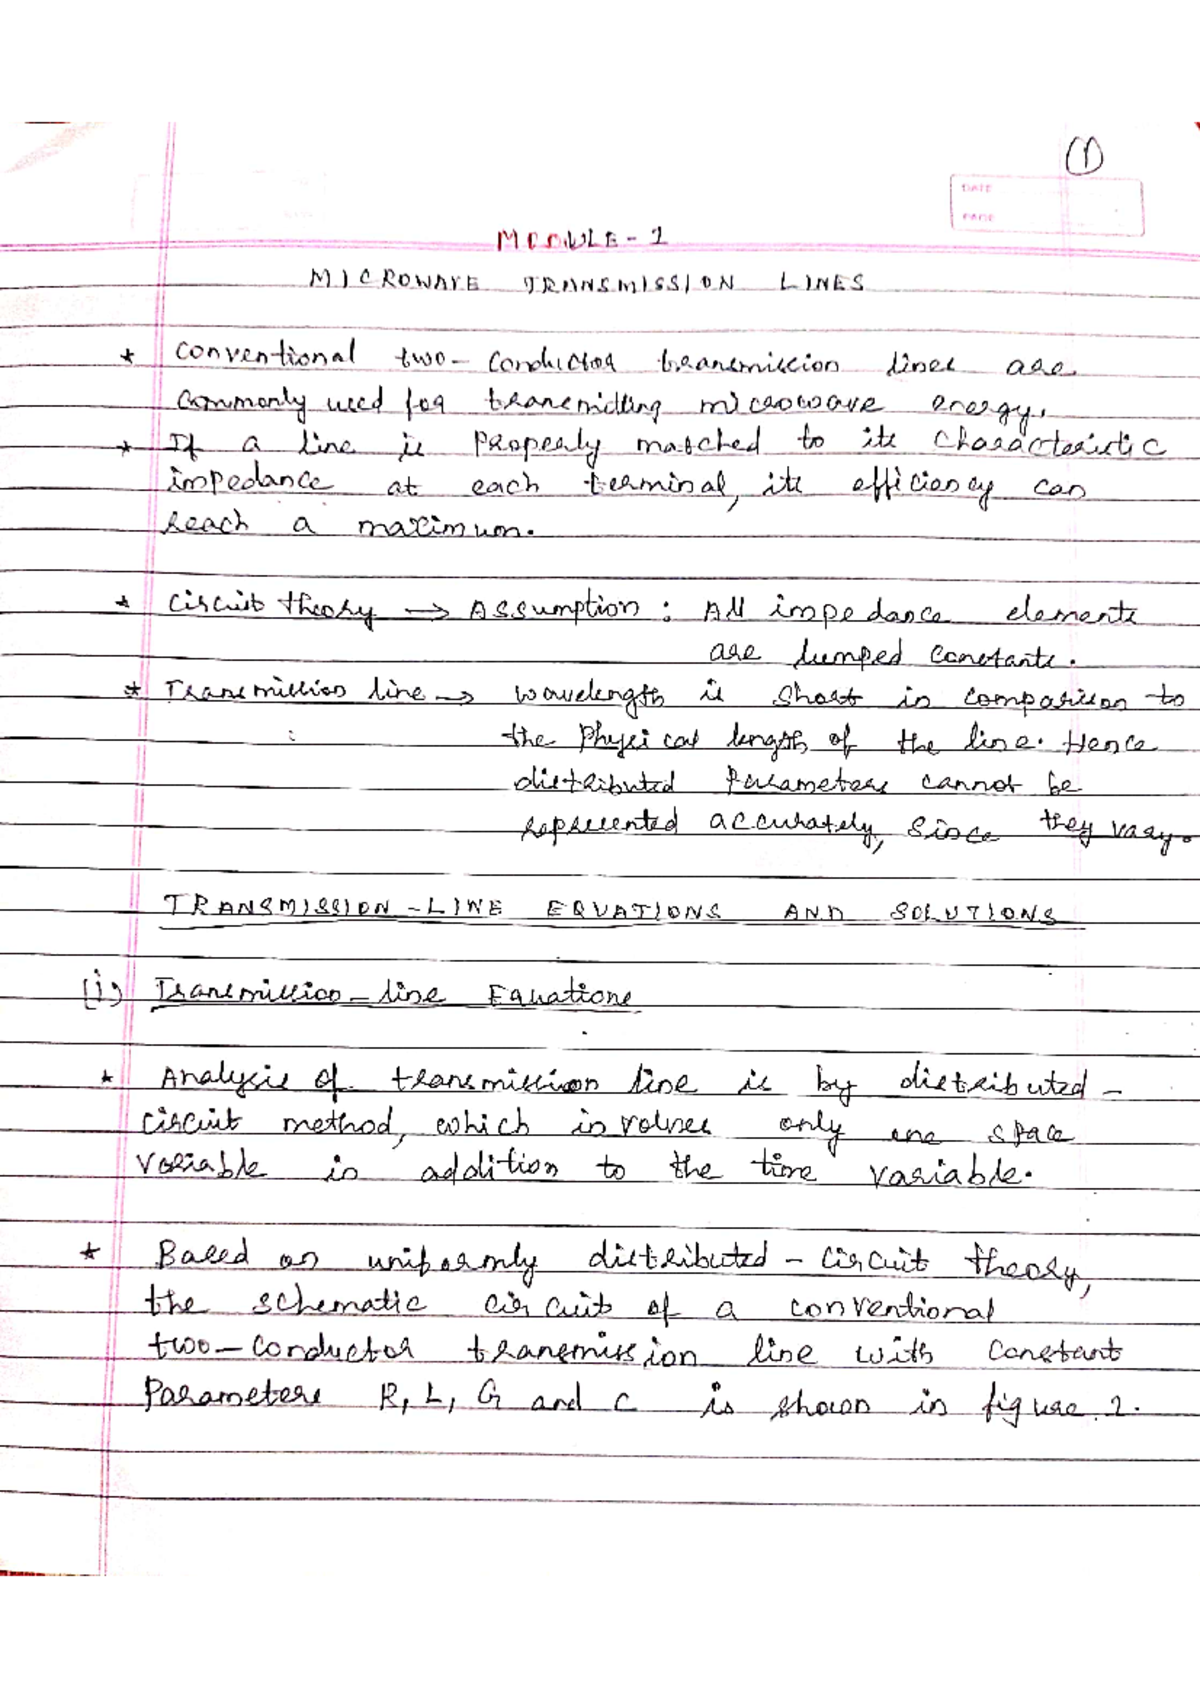 1
DATE
PAGE
MODULE-1
MICROWAVE TRANSMISSION LINES
* Conventional two-conductor transmission lines are
commonly used for transmitting microwave energy.
* If a line is properly matched to its characteristic
impedance at each terminal, its efficiency can
reach a maximum.
* Circuit theory → Assumption : All impedance elements
are lumped constants.
* Transmission line → wavelength is short in comparison to
: the physical length of the line. Hence
distributed parameters cannot be
represented accurately, since they vary.
TRANSMISSION-LINE EQUATIONS AND SOLUTIONS
(i) Transmission-line Equations
* Analysis of transmission line is by distributed-
circuit method, which involves only one space
variable in addition to the time variable.
* Based on uniformly distributed-circuit theory,
the schematic circuit of a conventional
two-conductor transmission line with constant
parameters R, L, G and C is shown in figure